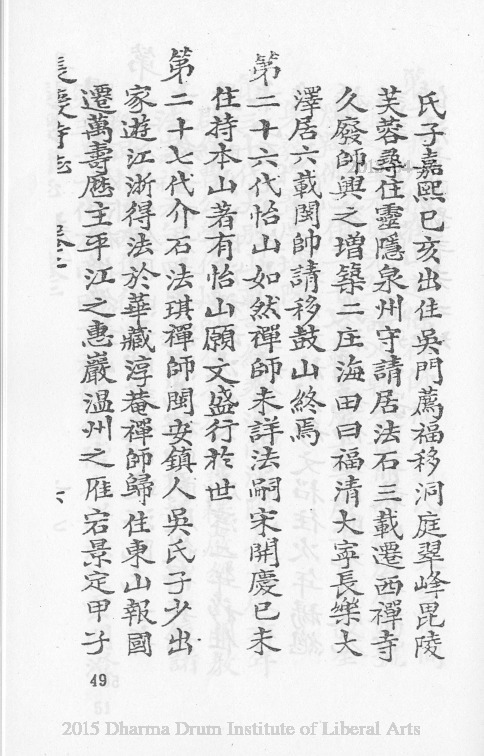 氏子嘉熙巳亥出住吳門薦福移洞庭翠峰毘陵
芙蓉尋住靈隱泉州守請居法石三載遷西禪寺
久廢師興之增築二庄海田曰福清大寧長樂大
澤居六載閩帥請移鼓山終焉
第二十六代怡山如然禪師未詳法嗣宋開慶巳未
住持本山著有怡山願文盛行於世
第二十七代介石法琪禪師閩安鎮人吳氏子少出
家遊江浙得法於華藏淳菴禪師歸住東山報國
遷萬壽歷主平江之惠巖温州之雁宕景定甲子
49
2015 Dharma Drum Institute of Liberal Arts